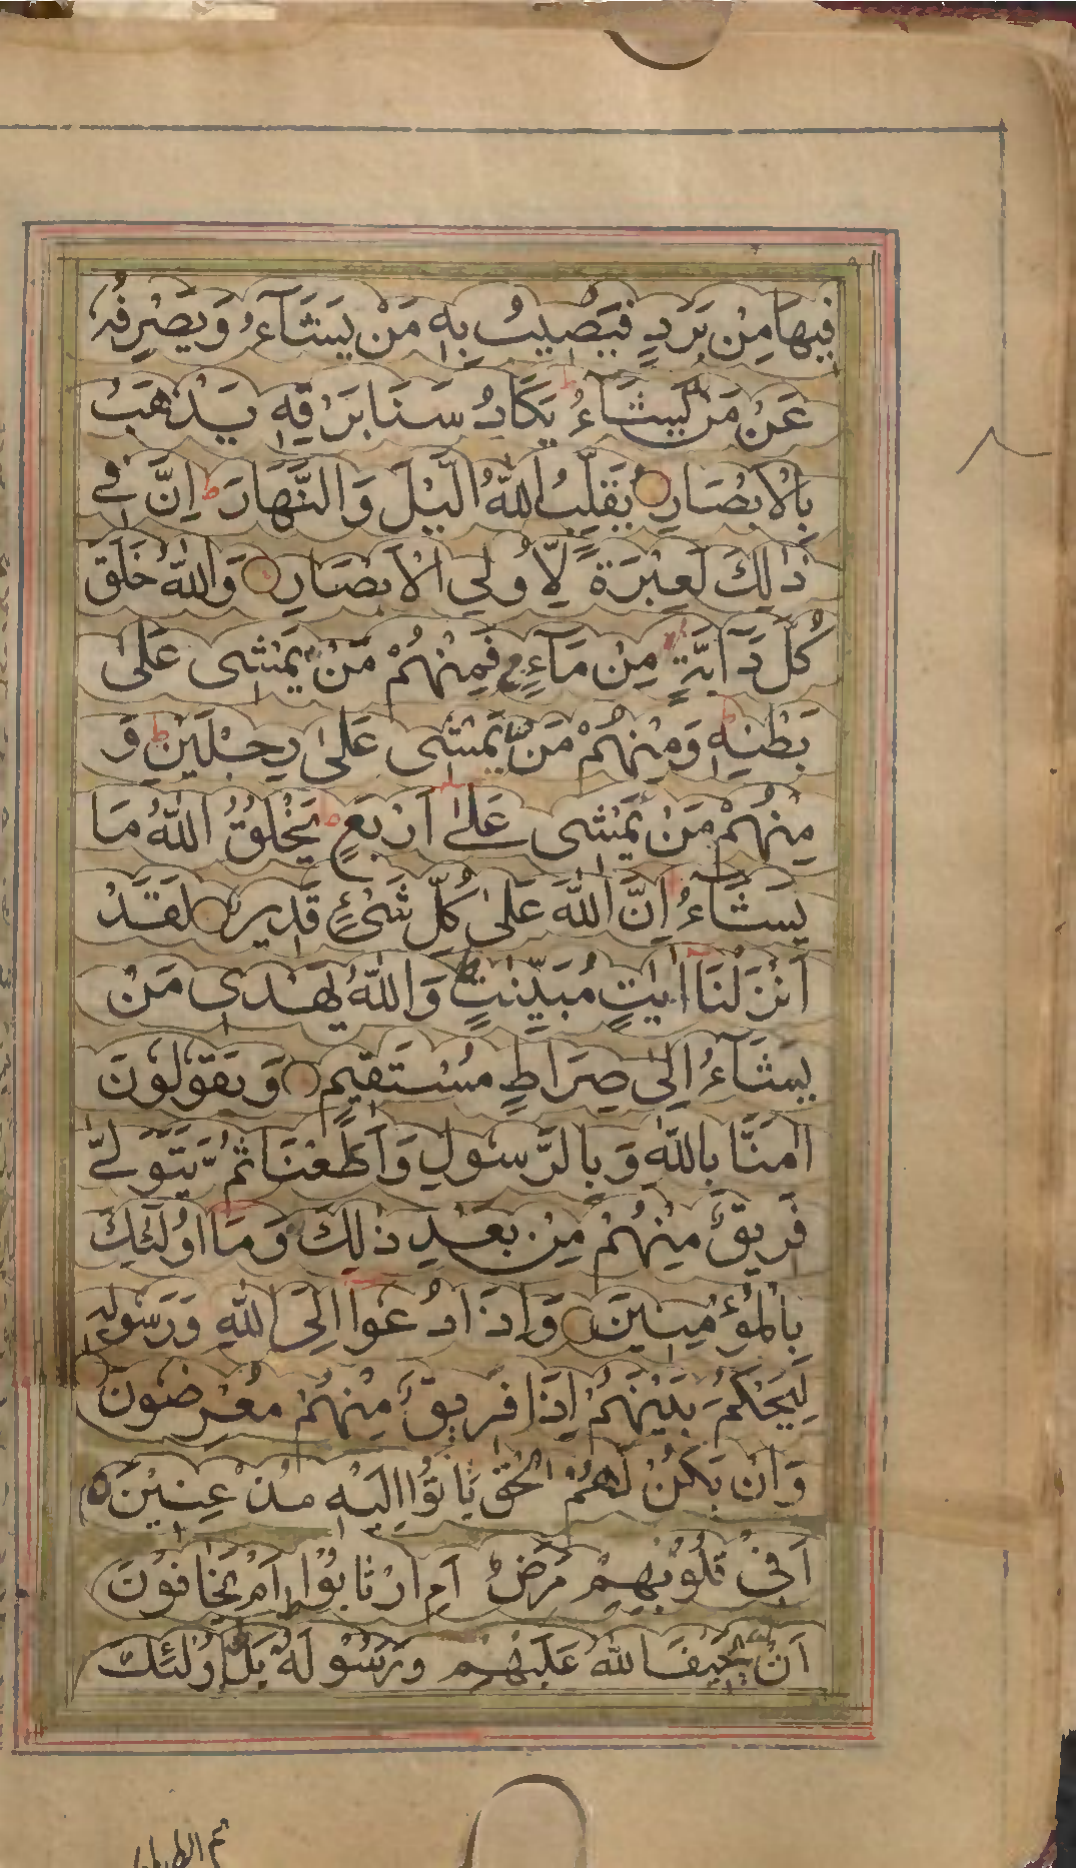 فِيهَا مِنْ بَرَدٍ فَيُصِيبُ بِهٖ مَنْ يَشَآءُ وَيَصْرِفُهٗ
عَنْ مَنْ يَشَآءُ ط يَكَادُ سَنَا بَرْقِهٖ يَذْهَبُ
بِالْاَبْصَارِ يُقَلِّبُ اللّٰهُ الَّيْلَ وَالنَّهَارَ ط اِنَّ فِي
ذٰلِكَ لَعِبْرَةً لِّاُولِي الْاَبْصَارِ وَاللّٰهُ خَلَقَ
كُلَّ دَآبَّةٍ مِنْ مَآءٍ ج فَمِنْهُمْ مَنْ يَمْشِي عَلٰى
بَطْنِهٖ ط وَمِنْهُمْ مَنْ يَمْشِي عَلٰى رِجْلَيْنِ ط وَ
مِنْهُمْ مَنْ يَمْشِي عَلٰى اَرْبَعٍ ط يَخْلُقُ اللّٰهُ مَا
يَشَآءُ اِنَّ اللّٰهَ عَلٰى كُلِّ شَيْءٍ قَدِيرٌ لَقَدْ
اَنْزَلْنَا اٰيٰتٍ مُبَيِّنٰتٍ ط وَاللّٰهُ يَهْدِي مَنْ
يَشَآءُ اِلٰى صِرَاطٍ مُسْتَقِيمٍ وَيَقُولُونَ
اٰمَنَّا بِاللّٰهِ وَبِالرَّسُولِ وَاَطَعْنَا ثُمَّ يَتَوَلّٰى
فَرِيقٌ مِنْهُمْ مِنْ بَعْدِ ذٰلِكَ وَمَا اُولٰٓئِكَ
بِالْمُؤْمِنِينَ وَاِذَا دُعُوا اِلَى اللّٰهِ وَرَسُولِهٖ
لِيَحْكُمَ بَيْنَهُمْ اِذَا فَرِيقٌ مِنْهُمْ مُعْرِضُونَ
وَاِنْ يَكُنْ لَهُمُ الْحَقُّ يَاْتُوٓا اِلَيْهِ مُذْعِنِيْنَ
اَفِيْ قُلُوْبِهِمْ مَرَضٌ اَمِ ارْتَابُوْا اَمْ يَخَافُوْنَ
اَنْ يَحِيفَ اللّٰهُ عَلَيْهِمْ وَرَسُوْلُهٗ ط بَلْ اُولٰئِكَ